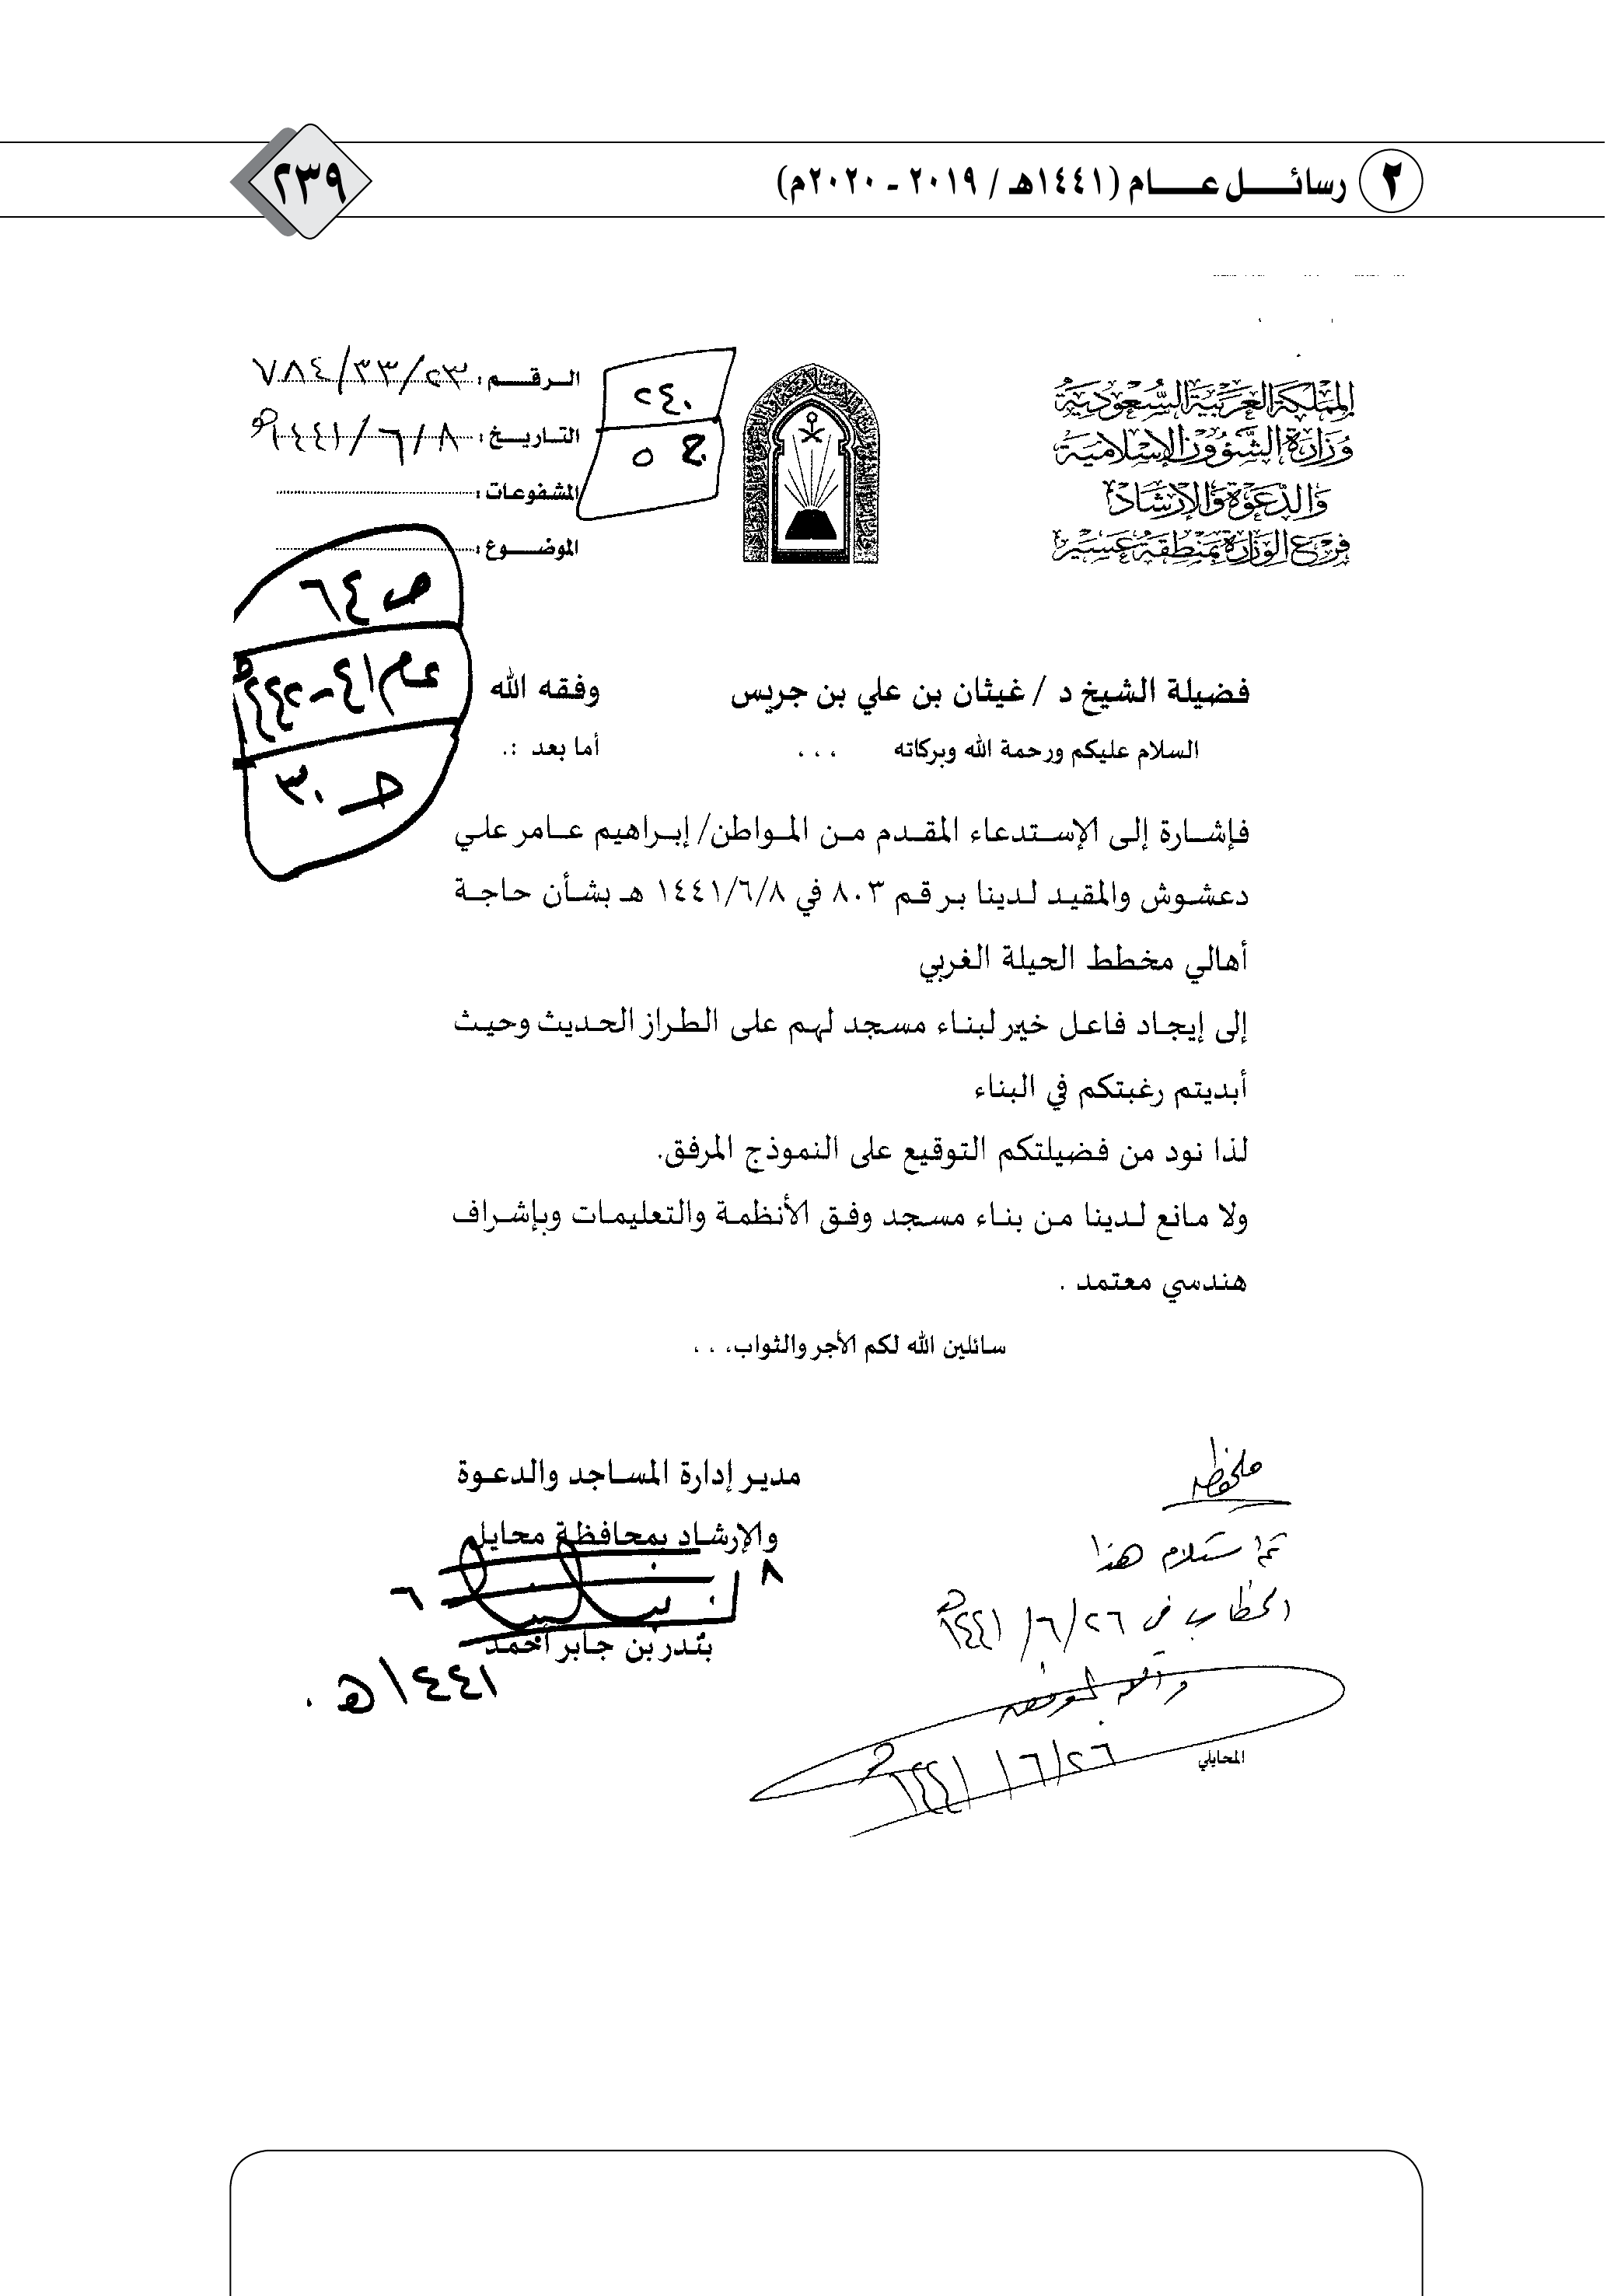 ٢ رسائل عام (١٤٤١هـ / ٢٠١٩ - ٢٠٢٠م)
٢٣٩
المملكة العربية السعودية
وزارة الشؤون الإسلامية
والدعوة والإرشاد
فرع الوزارة بمنطقة عسير
٢٤٠
ج ٥
الرقم : ٧٨٤/٣٣/٢٣
التاريخ : ١٤٤١/٦/٨هـ
المشفوعات :
الموضوع :
ص ٦٤
ح ٣٠
فضيلة الشيخ د / غيثان بن علي بن جريس وفقه الله
السلام عليكم ورحمة الله وبركاته ... أما بعد :.
فإشارة إلى الإستدعاء المقدم من المواطن/ إبراهيم عامر علي
دعشوش والمقيد لدينا برقم ٨٠٣ في ١٤٤١/٦/٨ هـ بشأن حاجة
أهالي مخطط الحيلة الغربي
إلى إيجاد فاعل خير لبناء مسجد لهم على الطراز الحديث وحيث
أبديتم رغبتكم في البناء
لذا نود من فضيلتكم التوقيع على النموذج المرفق.
ولا مانع لدينا من بناء مسجد وفق الأنظمة والتعليمات وبإشراف
هندسي معتمد .
سائلين الله لكم الأجر والثواب، . .
مدير إدارة المساجد والدعوة
والإرشاد بمحافظة محايل
٨
٦
بندر بن جابر أحمد
١٤٤١هـ .
ملحوظة
تم استلام هذا
الخطاب في ٢٦/٦/١٤٤١هـ
والله الموفق
٢٦/٦/١٤٤١هـ
المحايلي